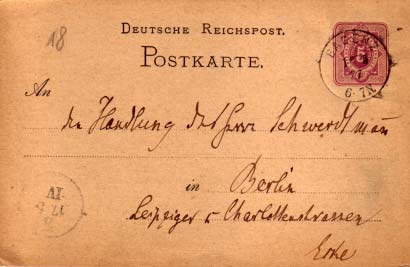 18
DEUTSCHE REICHSPOST.
POSTKARTE.
5
6-7N
An
die Handlung des Herrn Schwerdtmann
in Berlin
Leipziger u Charlottenstrassen
Ecke
IV